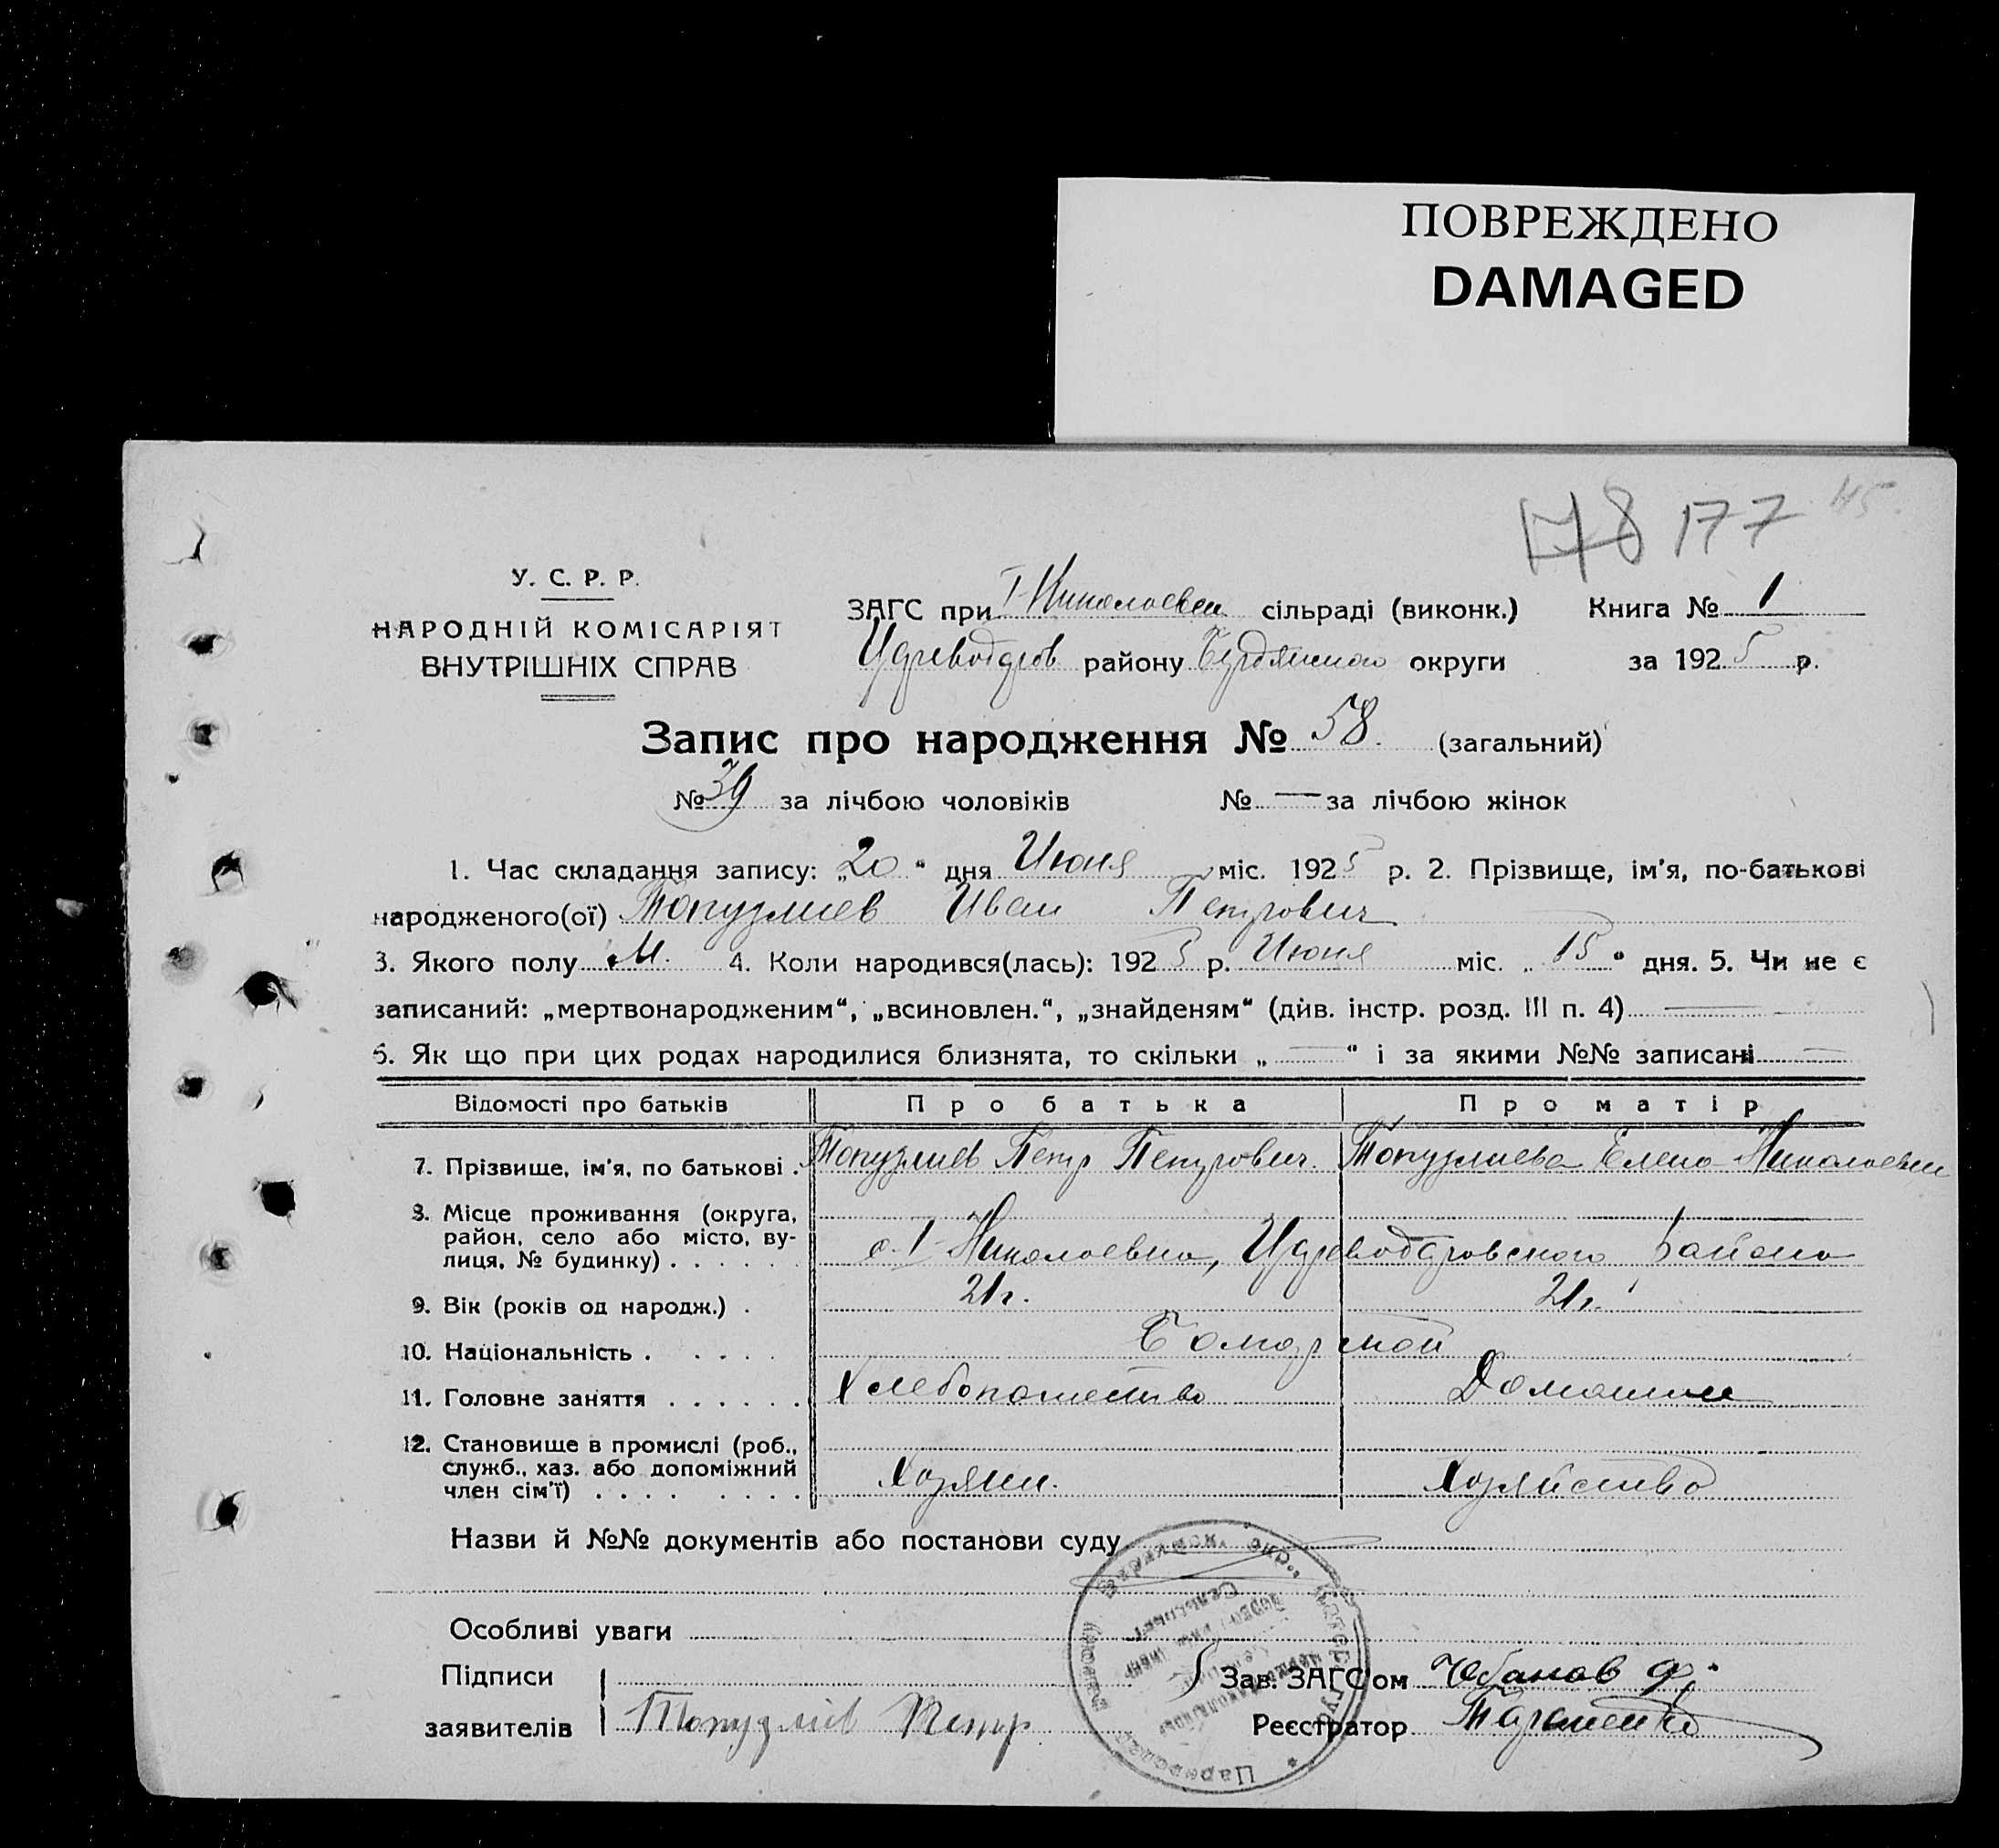 ПОВРЕЖДЕНО
DAMAGED
178 177 45
У. С. Р. Р.
НАРОДНІЙ КОМІСАРІЯТ
ВНУТРІШНІХ СПРАВ
ЗАГС при І-Николаевки сільраді (виконк.) Книга № 1
Цареводаров району Бердянского округи за 1925 р.
Запис про народження № 58. (загальний)
№ 39 за лічбою чоловіків № — за лічбою жінок
1. Час складання запису: „20“ дня Июня міс. 1925 р. 2. Прізвище, ім'я, по-батькові
народженого(ої) Топузлиев Иван Петрович
3. Якого полу М. 4. Коли народився(лась): 1925 р. Июня міс. „15“ дня. 5. Чи не є
записаний: „мертвонародженим“, „всиновлен.“, „знайденям“ (див. інстр. розд. III п. 4) —
6. Як що при цих родах народилися близнята, то скільки „—“ і за якими №№ записані —
Відомості про батьків Про батька Про матір
7. Прізвище, ім'я, по батькові . Топузлиев Петр Петрович. Топузлиева Елена Николаевна
8. Місце проживання (округа,
район, село або місто, ву-
лиця, № будинку) . . . . . . с. І-Николаевка, Цареводаровского района
9. Вік (років од народж.) . 21 г. 21 г.
10. Національність . . . . . Болгарской
11. Головне заняття . . . . . . Хлебопашество Домашнее
12. Становище в промислі (роб.,
служб., хаз. або допоміжний
член сім'ї) . . . . . . . . Хозяин. Хозяйство
Назви й №№ документів або постанови суду
Особливі уваги
Підписи Зав. ЗАГС'ом Чобанов Ф.
заявителів Топузлиев Петр Реєстратор
Бердянск. окр.